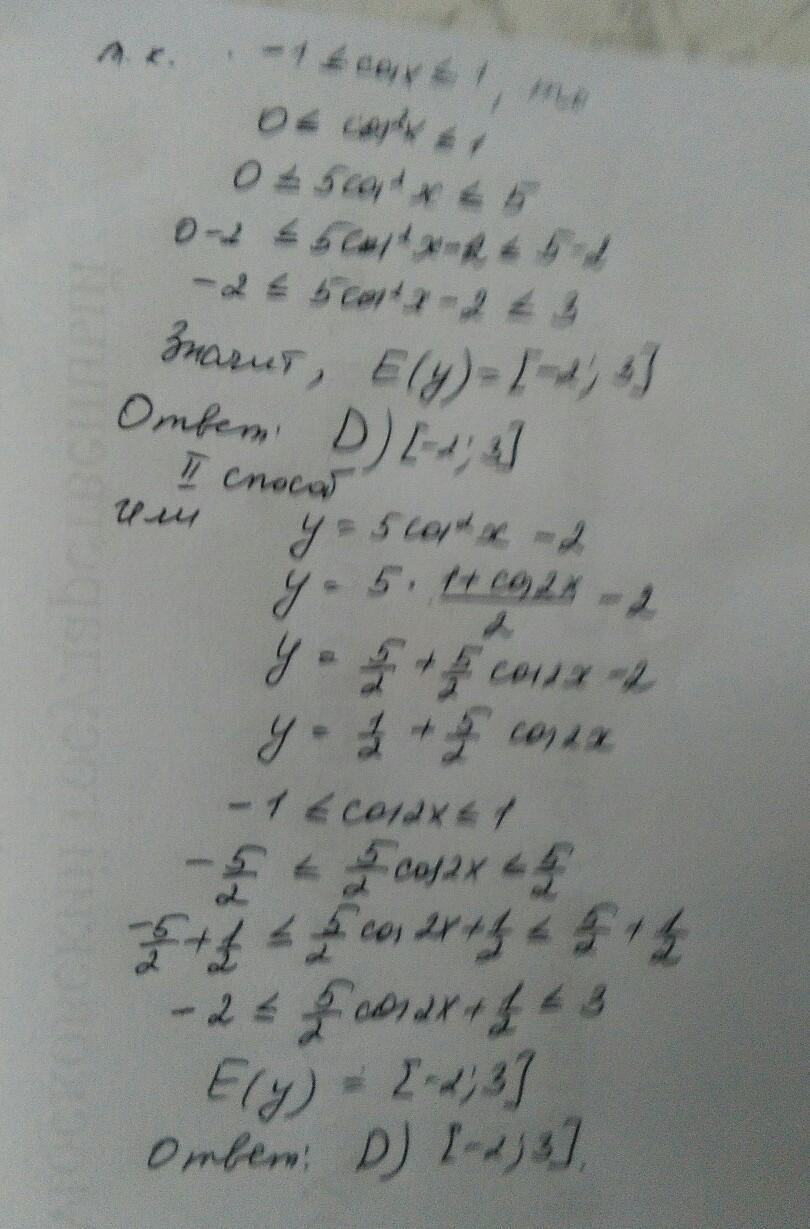 т.к. -1 ≤ cosx ≤ 1, то
0 ≤ cos²x ≤ 1
0 ≤ 5cos²x ≤ 5
0-2 ≤ 5cos²x-2 ≤ 5-2
-2 ≤ 5cos²x-2 ≤ 3
Значит, E(y)=[-2; 3]
Ответ: D) [-2; 3]
II способ
или
y = 5cos²x - 2
y = 5 · (1+cos2x)/2 - 2
y = 5/2 + 5/2 cos2x - 2
y = 1/2 + 5/2 cos2x
-1 ≤ cos2x ≤ 1
-5/2 ≤ 5/2 cos2x ≤ 5/2
-5/2 + 1/2 ≤ 5/2 cos2x + 1/2 ≤ 5/2 + 1/2
-2 ≤ 5/2 cos2x + 1/2 ≤ 3
E(y) = [-2; 3]
Ответ: D) [-2; 3].